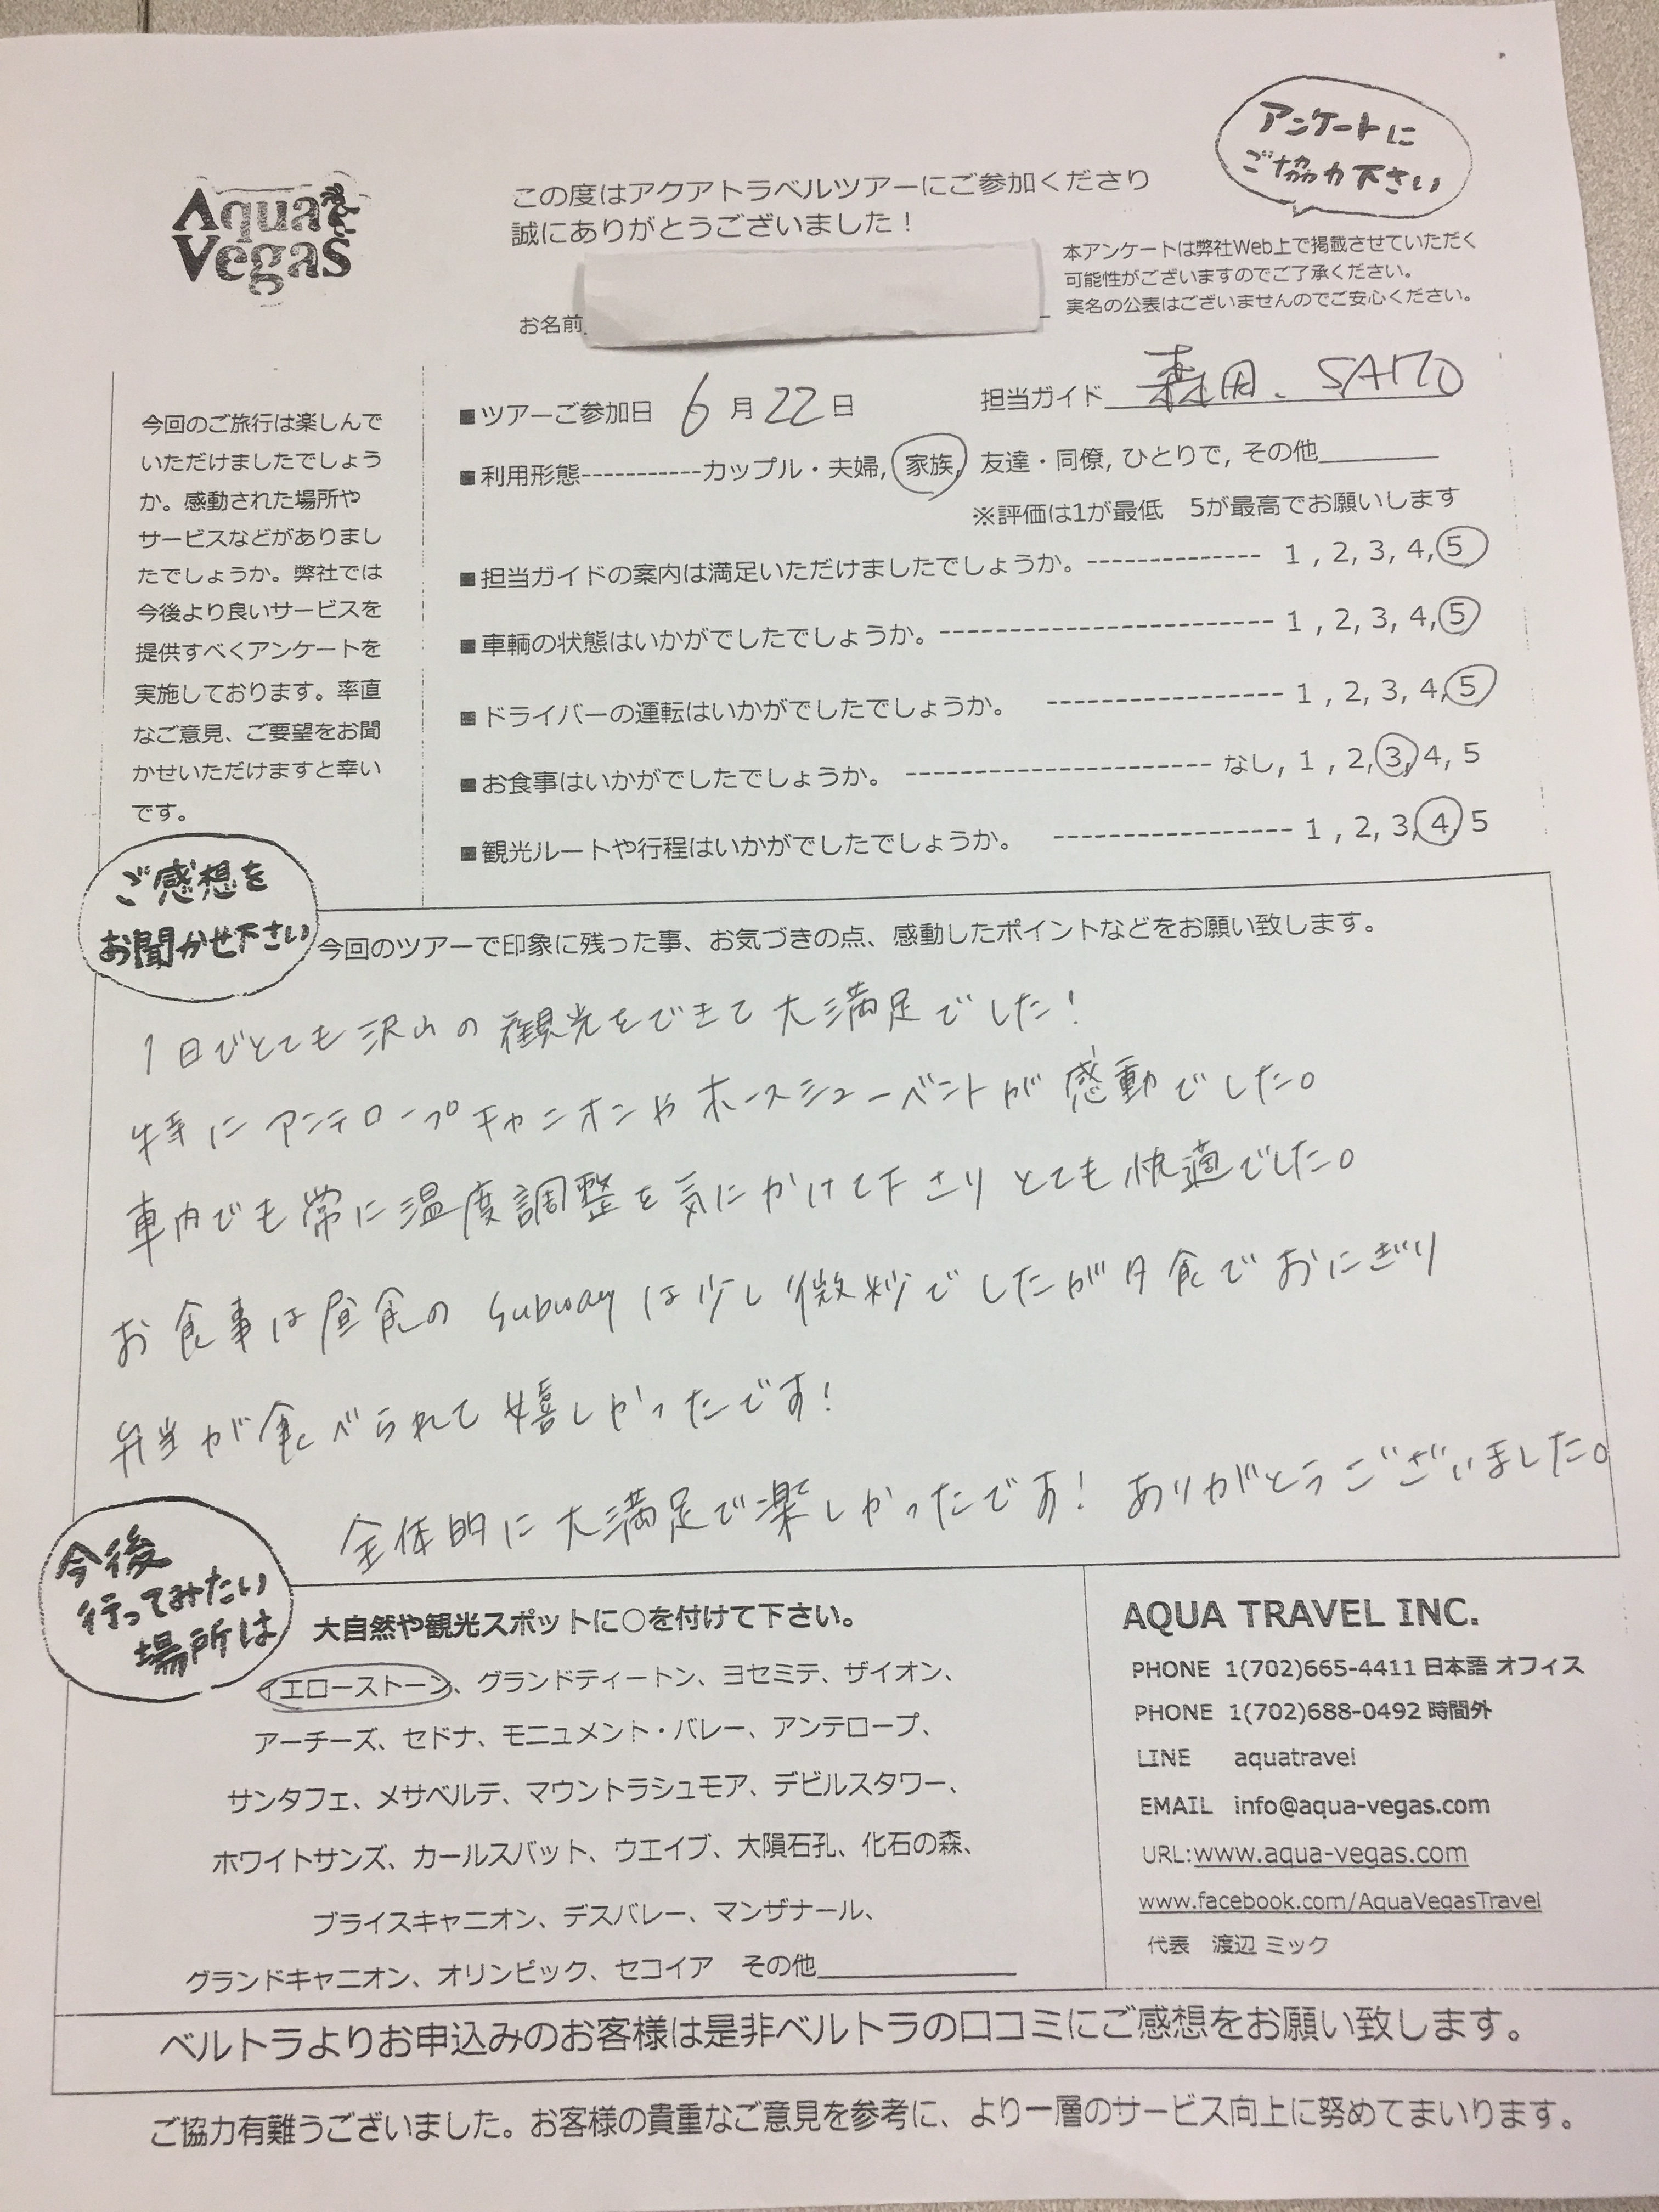 アンケートに
ご協力下さい
Aqua
Vegas
この度はアクアトラベルツアーにご参加くださり
誠にありがとうございました！
本アンケートは弊社Web上で掲載させていただく
可能性がございますのでご了承ください。
実名の公表はございませんのでご安心ください。
お名前
今回のご旅行は楽しんで
いただけましたでしょう
か。感動された場所や
サービスなどがありまし
たでしょうか。弊社では
今後より良いサービスを
提供すべくアンケートを
実施しております。率直
なご意見、ご要望をお聞
かせいただけますと幸い
です。
■ツアーご参加日 6月22日 担当ガイド 森田、SAITO
■利用形態-----------カップル・夫婦, 家族, 友達・同僚, ひとりで, その他
※評価は1が最低 5が最高でお願いします
■担当ガイドの案内は満足いただけましたでしょうか。------------- 1 , 2, 3, 4, 5
■車輌の状態はいかがでしたでしょうか。------------------------- 1 , 2, 3, 4, 5
■ドライバーの運転はいかがでしたでしょうか。 ---------------- 1 , 2, 3, 4, 5
■お食事はいかがでしたでしょうか。 ---------------------- なし, 1 , 2, 3, 4, 5
■観光ルートや行程はいかがでしたでしょうか。 ---------------- 1 , 2, 3, 4, 5
ご感想を
お聞かせ下さい
今回のツアーで印象に残った事、お気づきの点、感動したポイントなどをお願い致します。
1日でとても沢山の観光をできて大満足でした！
特にアンテロープキャニオンやホースシューベントが感動でした。
車内でも常に温度調整を気にかけて下さりとても快適でした。
お食事は昼食のsubwayは少し微妙でしたが夕食でおにぎり
弁当が食べられて嬉しかったです！
全体的に大満足で楽しかったです！ありがとうございました。
今後
行ってみたい
場所は
大自然や観光スポットに○を付けて下さい。
イエローストーン、グランドティートン、ヨセミテ、ザイオン、
アーチーズ、セドナ、モニュメント・バレー、アンテロープ、
サンタフェ、メサベルテ、マウントラシュモア、デビルスタワー、
ホワイトサンズ、カールスバット、ウエイブ、大隕石孔、化石の森、
ブライスキャニオン、デスバレー、マンザナール、
グランドキャニオン、オリンピック、セコイア その他
AQUA TRAVEL INC.
PHONE 1(702)665-4411 日本語 オフィス
PHONE 1(702)688-0492 時間外
LINE aquatravel
EMAIL info@aqua-vegas.com
URL:www.aqua-vegas.com
www.facebook.com/AquaVegasTravel
代表 渡辺 ミック
ベルトラよりお申込みのお客様は是非ベルトラの口コミにご感想をお願い致します。
ご協力有難うございました。お客様の貴重なご意見を参考に、より一層のサービス向上に努めてまいります。